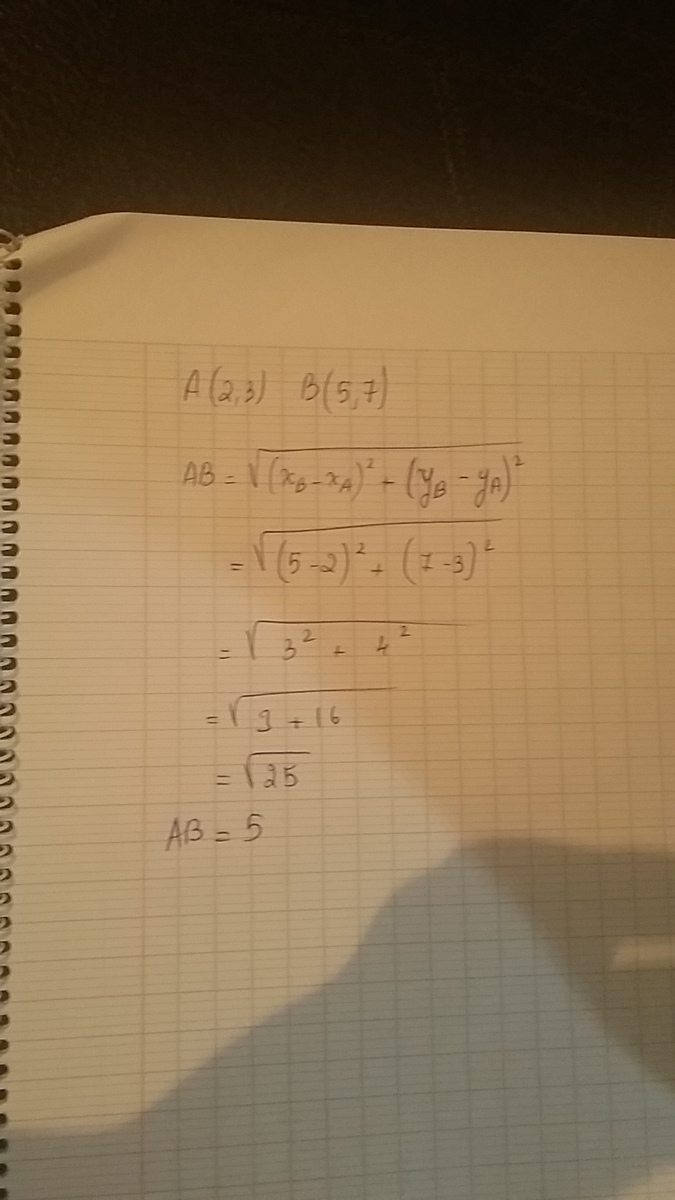 A(2,3) B(5,7)
AB = √(x_B - x_A)² + (y_B - y_A)²
= √(5-2)² + (7-3)²
= √3² + 4²
= √9 + 16
= √25
AB = 5